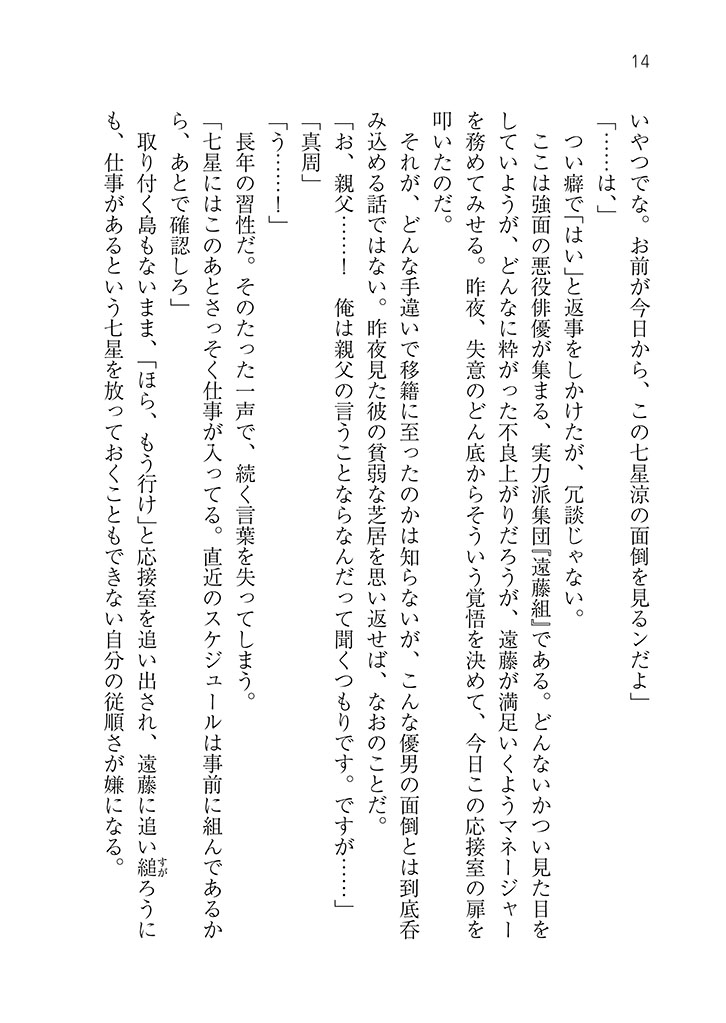 14
いやつでな。お前が今日から、この七星涼の面倒を見るンだよ」
「……は、」
つい癖で「はい」と返事をしかけたが、冗談じゃない。
ここは強面の悪役俳優が集まる、実力派集団『遠藤組』である。どんないかつい見た目を
していようが、どんなに粋がった不良上がりだろうが、遠藤が満足いくようマネージャー
を務めてみせる。昨夜、失意のどん底からそういう覚悟を決めて、今日この応接室の扉を
叩いたのだ。
それが、どんな手違いで移籍に至ったのかは知らないが、こんな優男の面倒とは到底呑
み込める話ではない。昨夜見た彼の貧弱な芝居を思い返せば、なおのことだ。
「お、親父……！　俺は親父の言うことならなんだって聞くつもりです。ですが……」
「真周」
「う……！」
長年の習性だ。そのたった一声で、続く言葉を失ってしまう。
「七星にはこのあとさっそく仕事が入ってる。直近のスケジュールは事前に組んであるか
ら、あとで確認しろ」
取り付く島もないまま、「ほら、もう行け」と応接室を追い出され、遠藤に追い縋すがろうに
も、仕事があるという七星を放っておくこともできない自分の従順さが嫌になる。